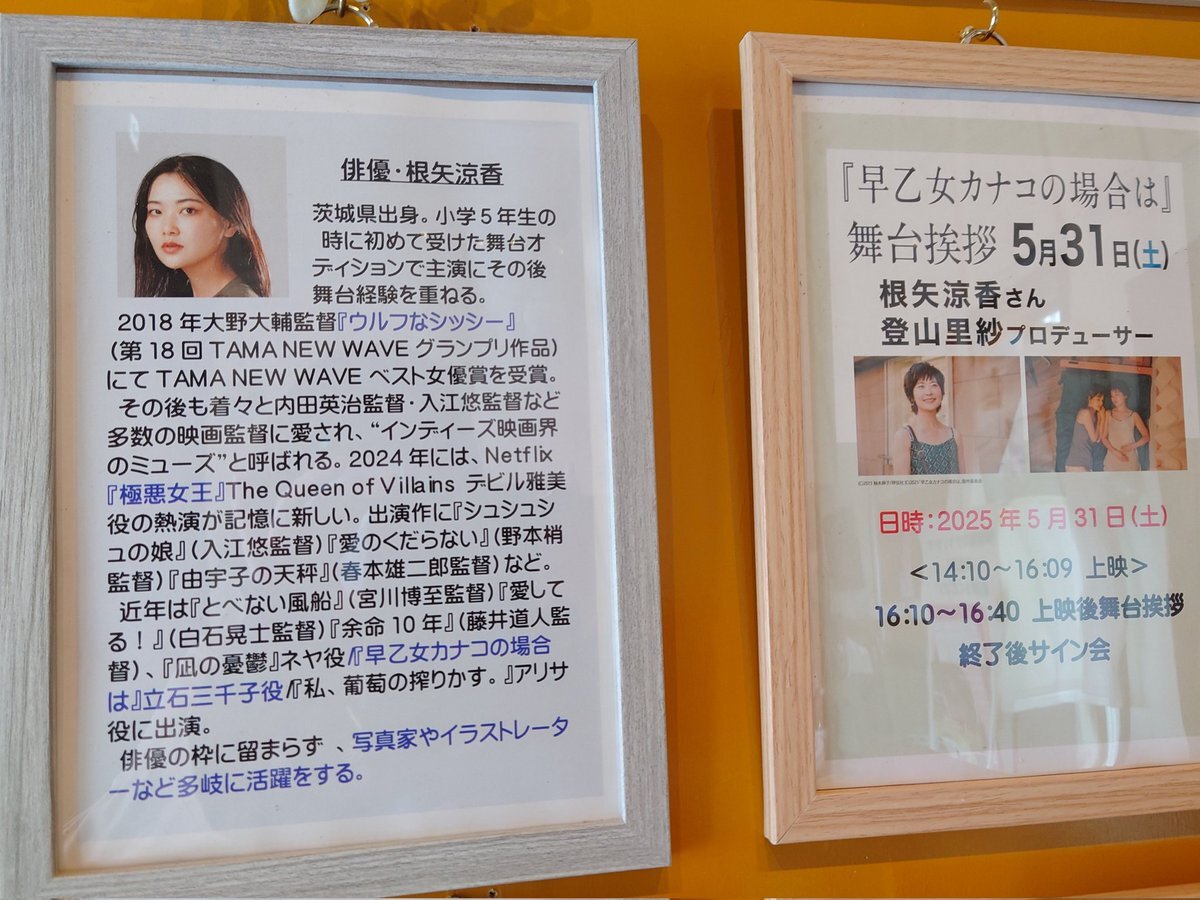 俳優・根矢涼香
茨城県出身。小学5年生の
時に初めて受けた舞台オ
ディションで主演にその後
舞台経験を重ねる。
2018年大野大輔監督『ウルフなシッシー』
（第18回 TAMA NEW WAVE グランプリ作品）
にて TAMA NEW WAVE ベスト女優賞を受賞。
その後も着々と内田英治監督・入江悠監督など
多数の映画監督に愛され、“インディーズ映画界
のミューズ”と呼ばれる。2024年には、Netflix
『極悪女王』The Queen of Villains デビル雅美
役の熱演が記憶に新しい。出演作に『シュシュシ
ュの娘』（入江悠監督）『愛のくだらない』（野本梢
監督）『由宇子の天秤』（春本雄二郎監督）など。
近年は『とべない風船』（宮川博至監督）『愛して
る！』（白石晃士監督）『余命10年』（藤井道人監
督）、『凪の憂鬱』ネヤ役/『早乙女カナコの場合
は』立石三千子役/『私、葡萄の搾りかす。』アリサ
役に出演。
俳優の枠に留まらず 、写真家やイラストレータ
ーなど多岐に活躍をする。
『早乙女カナコの場合は』
舞台挨拶 5月31日(土)
根矢涼香さん
登山里紗プロデューサー
日時：2025年5月31日（土）
＜14:10～16:09 上映＞
16:10～16:40 上映後舞台挨拶
終了後サイン会